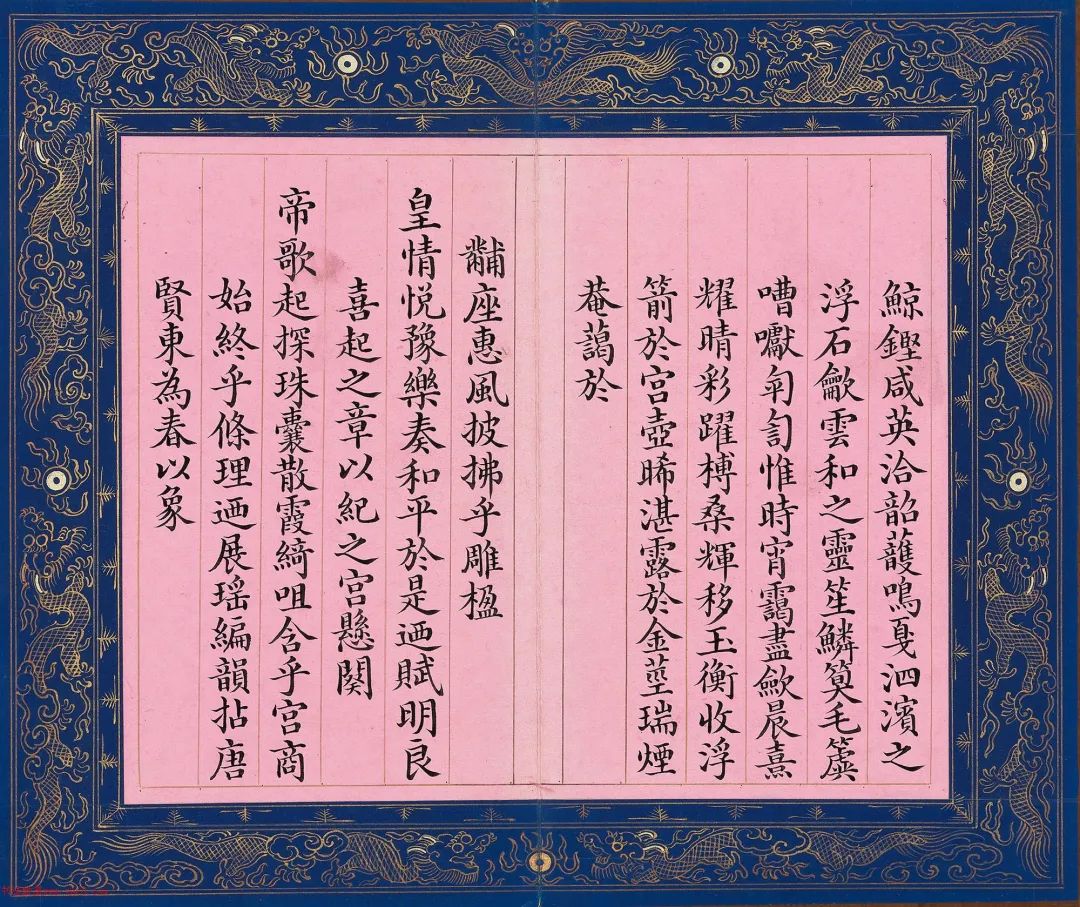 鯨鏗咸英洽韶頀鳴戛泗濱之
浮石龡雲和之靈笙鱗簨毛簴
嘈囐匉訇惟時宵靄盡歛晨熹
耀晴彩躍榑桑輝移玉衡收浮
箭於宮壺晞湛露於金莖瑞煙
菴藹於
黼座惠風披拂乎雕楹
皇情悅豫樂奏和平於是迺賦明良
喜起之章以紀之宮懸闋
帝歌起探珠囊散霞綺咀含乎宮商
始終乎條理迺展瑤編韻拈唐
賢東為春以象